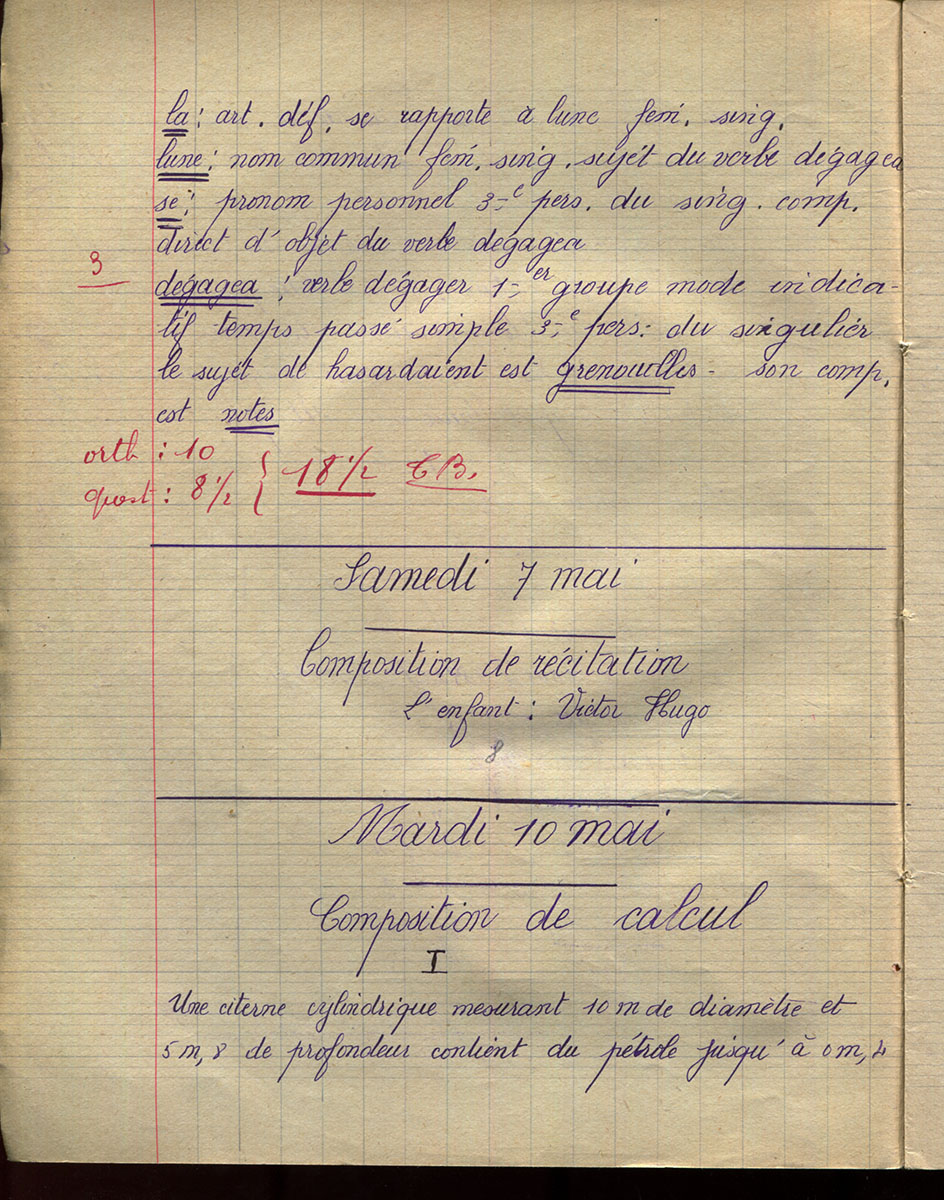 la : art. déf. se rapporte à lune fém. sing.
lune : nom commun fém. sing. sujet du verbe dégagea
se : pronom personnel 3e pers. du sing. comp.
direct d'objet du verbe dégagea
3
dégagea : verbe dégager 1er groupe mode indica-
tif temps passé simple 3e pers. du singulier
le sujet de hasardaient est grenouilles - son comp.
est notes
orth : 10
quest : 8 1/2 { 18 1/2 T B.
Samedi 7 mai
Composition de récitation
L'enfant : Victor Hugo
8
Mardi 10 mai
Composition de calcul
I
Une citerne cylindrique mesurant 10 m de diamètre et
5 m, 8 de profondeur contient du pétrole jusqu'à 0 m, 4